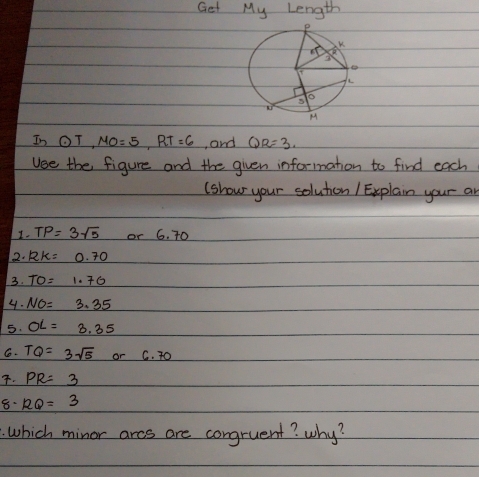 Get My Length
P
K
R
3
T
Q
L
5
O
N
M
In ⊙T, MO=5, RT=6, and QR=3.
Use the figure and the given information to find each
(show your solution/Explain your an
1. TP= 3√5 or 6.70
2. RK= 0.70
3. TO= 1.70
4. NO= 3.35
5. OL= 3.35
6. TQ= 3√5 or 6.70
7. PR= 3
8. RQ= 3
. Which minor arcs are congruent? why?